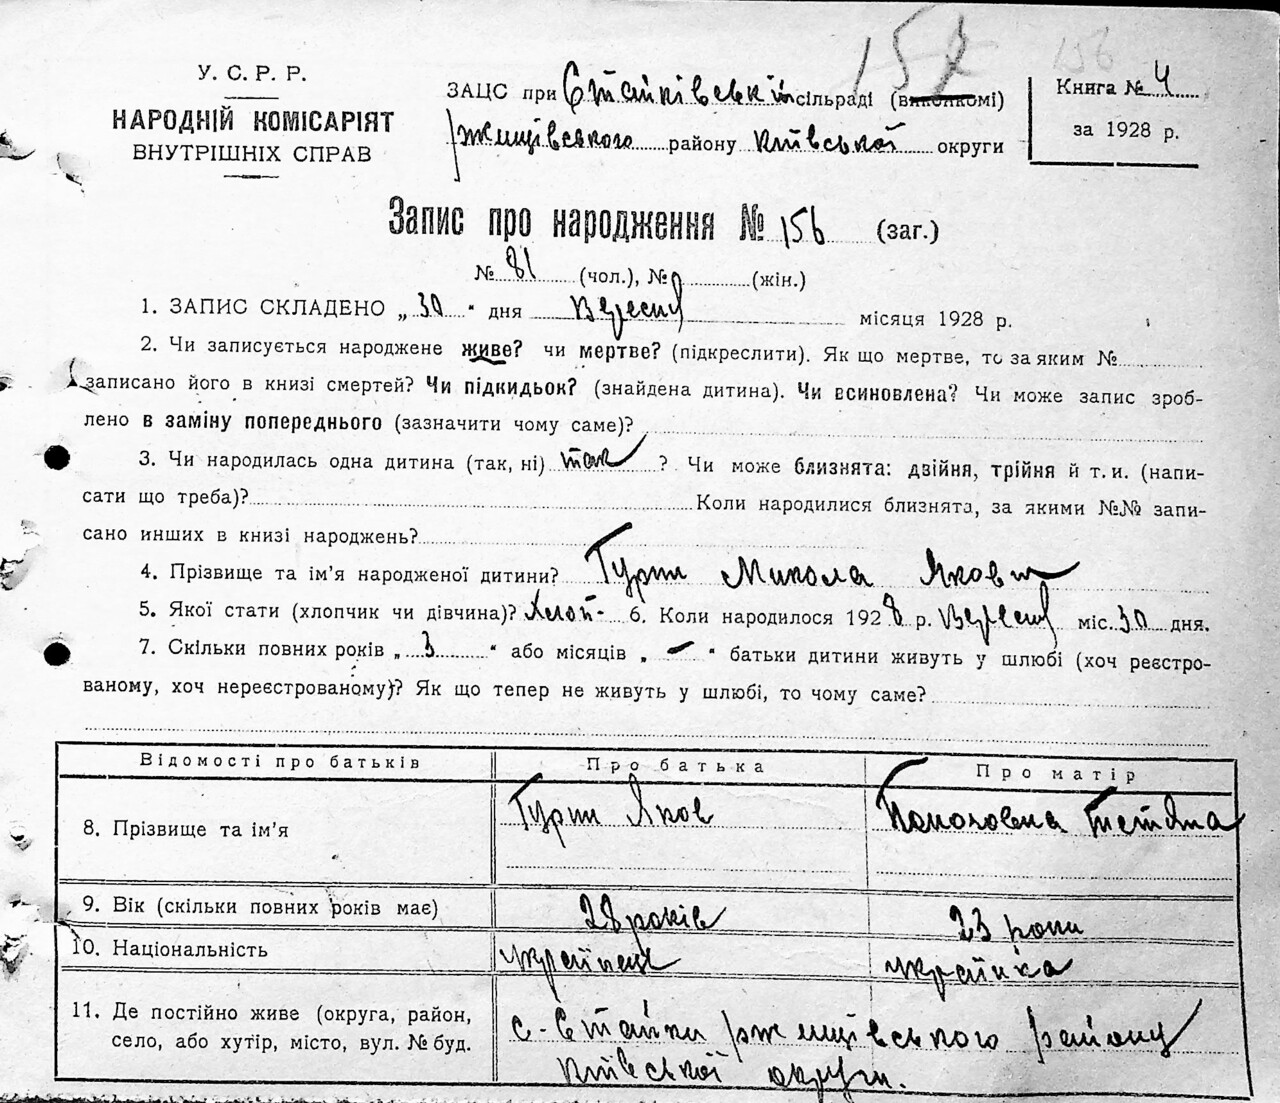 157 156
У. С. Р. Р.
НАРОДНІЙ КОМІСАРІЯТ
ВНУТРІШНІХ СПРАВ
ЗАЦС при Стайківській сільраді (виконкомі)
Ржищівського району Київської округи
Книга № 4
за 1928 р.
Запис про народження № 156 (заг.)
№ 81 (чол.), № (жін.)
1. ЗАПИС СКЛАДЕНО „30" дня Вересня місяця 1928 р.
2. Чи записується народжене живе? чи мертве? (підкреслити). Як що мертве, то за яким №
записано його в книзі смертей? Чи підкидьок? (знайдена дитина). Чи всиновлена? Чи може запис зроб-
лено в заміну попереднього (зазначити чому саме)?
3. Чи народилась одна дитина (так, ні) так ? Чи може близнята: двійня, трійня й т. и. (напи-
сати що треба)? Коли народилися близнята, за якими №№ запи-
сано инших в книзі народжень?
4. Прізвище та ім'я народженої дитини? Гурт Микола Яков
5. Якої стати (хлопчик чи дівчина)? Хлоп- 6. Коли народилося 1928 р. Вересня міс. 30 дня.
7. Скільки повних років „3" або місяців „-" батьки дитини живуть у шлюбі (хоч реєстро-
ваному, хоч нереєстрованому)? Як що тепер не живуть у шлюбі, то чому саме?
Відомості про батьків Про батька Про матір
8. Прізвище та ім'я Гурт Яков Тетяна
9. Вік (скільки повних років має) 28 років 23 роки
10. Національність українець українка
11. Де постійно живе (округа, район, с. Стайки Ржищівського району
село, або хутір, місто, вул. № буд. Київської округи.